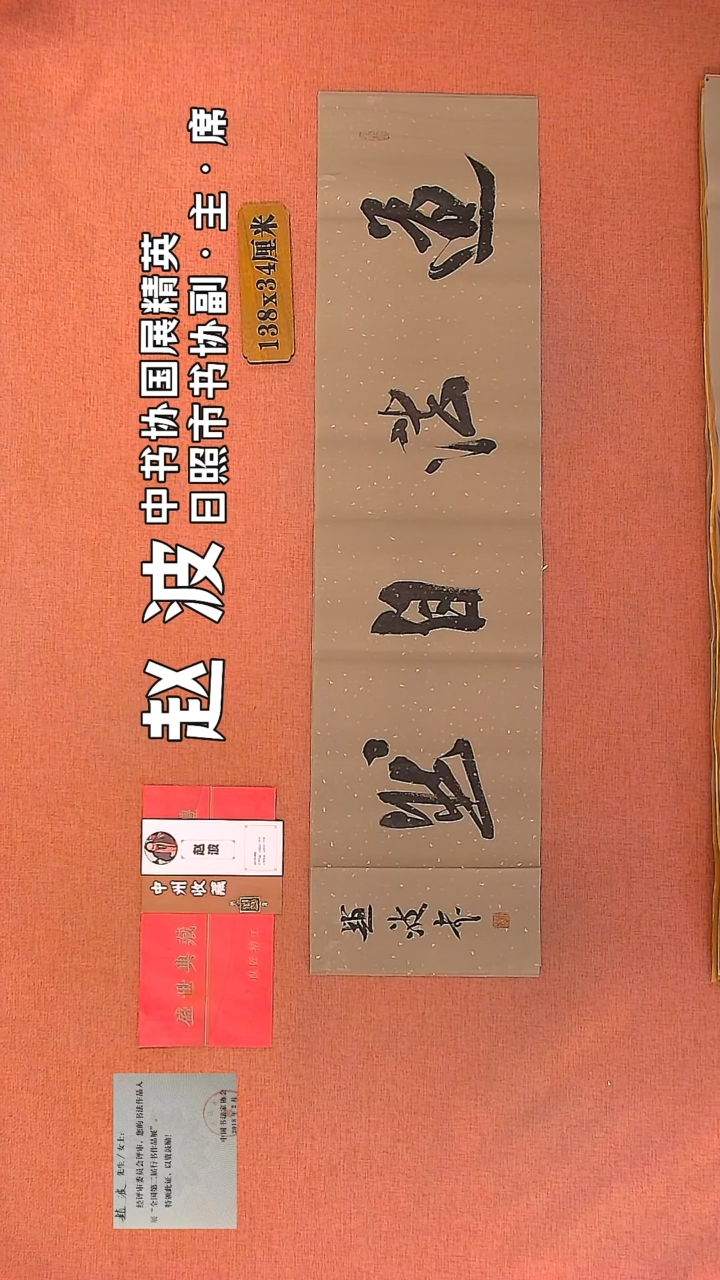 赵波
中书协国展精英
日照市书协副·主·席
138x34厘米
道法自然
趙波书
赵波
中州收藏
盛世典藏
赵波 先生/女士:
经评审委员会评审,您的书法作品入
展“全国第二届行书作品展”。
特颁此证,以资鼓励!
中国书法家协会
2018年2月